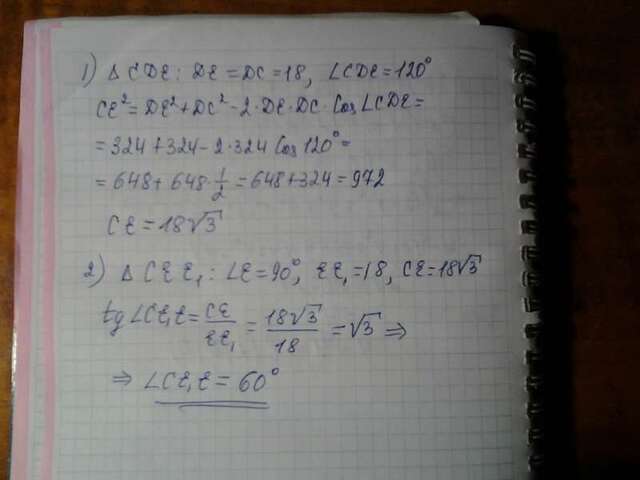 1) Δ CDE: DE = DC = 18, ∠CDE = 120°
CE² = DE² + DC² - 2·DE·DC·Cos∠CDE =
= 324 + 324 - 2·324 Cos 120° =
= 648 + 648·1/2 = 648 + 324 = 972
CE = 18√3
2) Δ CEE₁: ∠E = 90°, EE₁ = 18, CE = 18√3
tg∠CE₁E = CE/EE₁ = 18√3/18 = √3 ⇒
⇒ ∠CE₁E = 60°